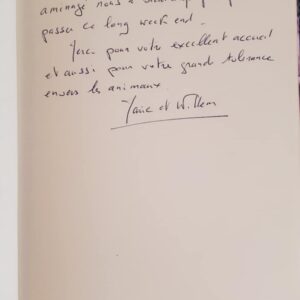 aménagé nous a
passer ce long week end.
Merci pour votre excellent accueil
et aussi pour votre grande tolérance
envers les animaux.
et Willem